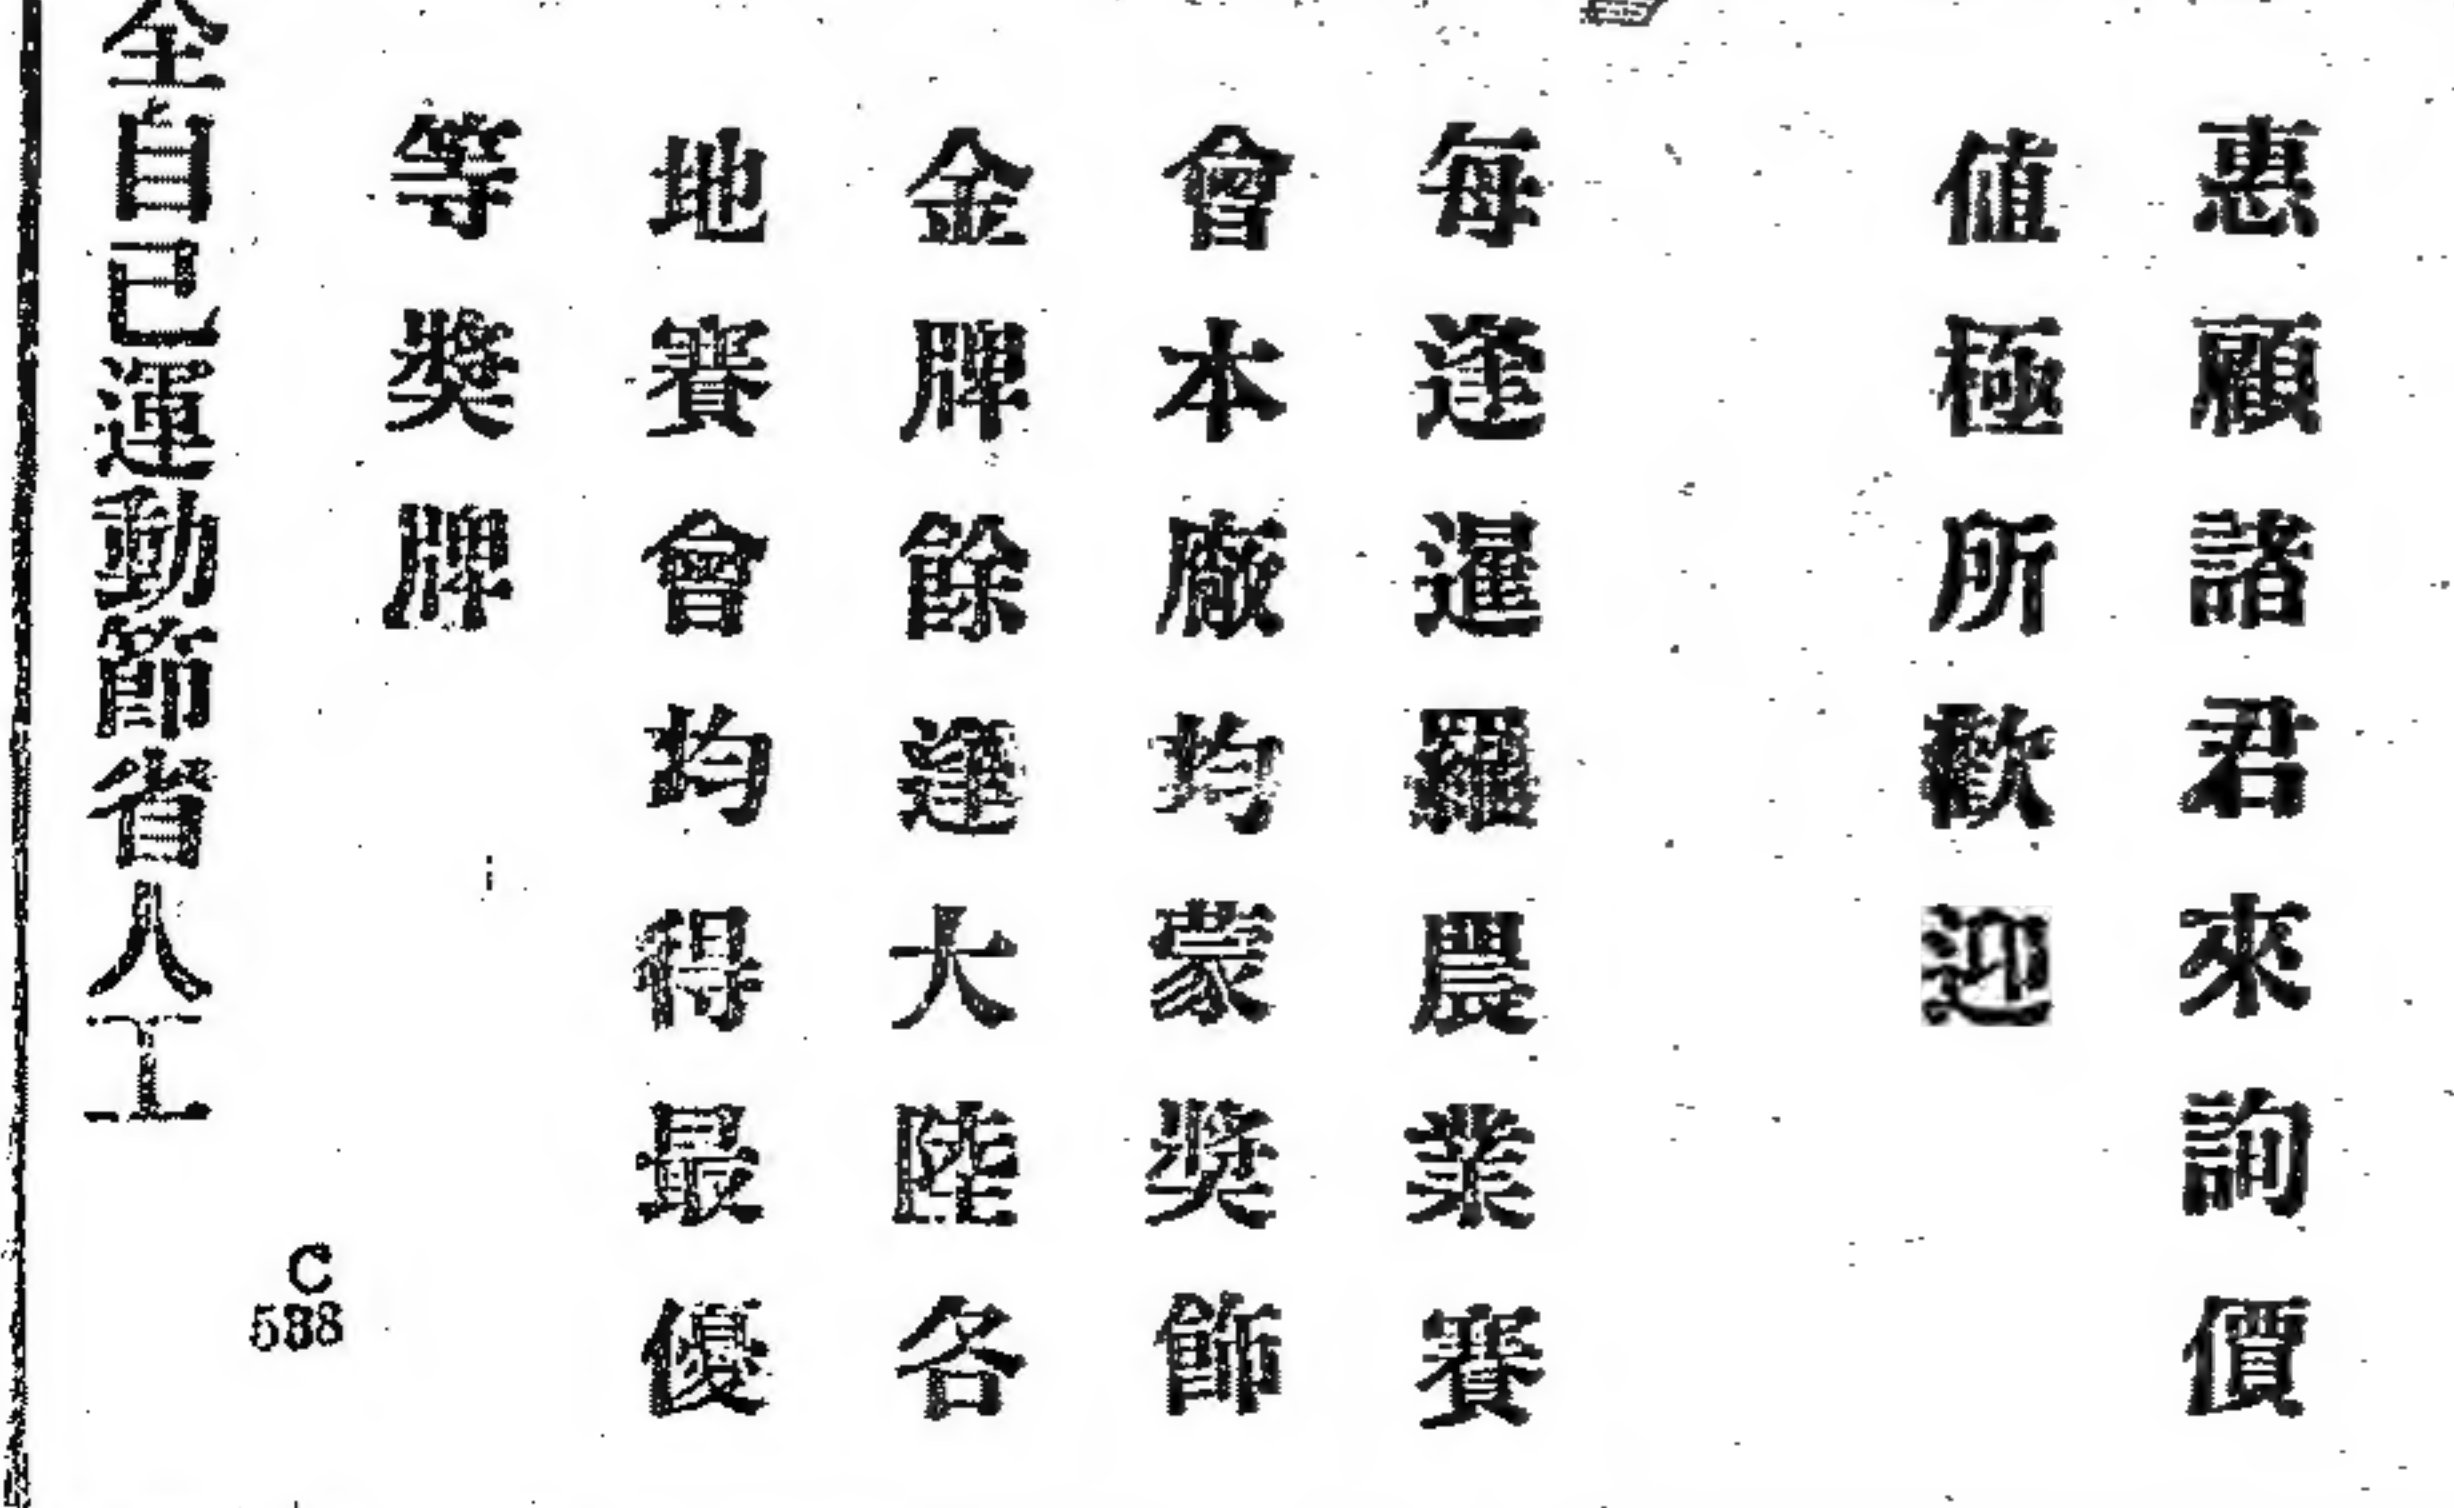 惠顧諸君來詢價
值極所歡迎
每逢暹羅農業賽
會本廠均蒙獎飾
金牌餘逢大陸各
地賽會均得最優
等獎牌
C
538
全自己運動節省人工